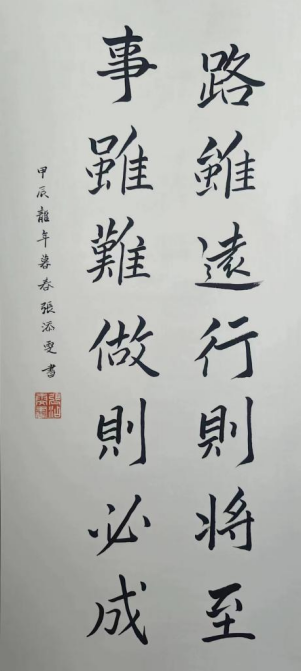 路雖遠行則將至
事雖難做則必成
甲辰龍年暮春張添雯書